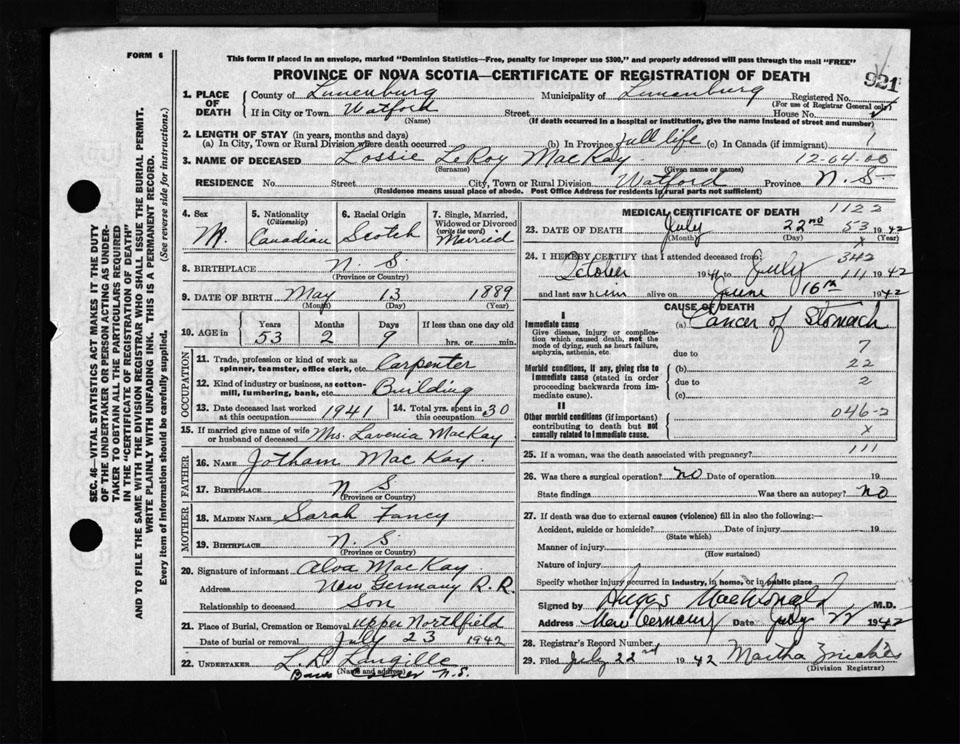 FORM 6
This form if placed in an envelope, marked "Dominion Statistics—Free, penalty for improper use $300," and properly addressed will pass through the mail "FREE"
PROVINCE OF NOVA SCOTIA—CERTIFICATE OF REGISTRATION OF DEATH
921
1. PLACE OF DEATH County of Lunenburg Municipality of Lunenburg Registered No.
(For use of Registrar General only)
If in City or Town Watford Street House No.
(Name) (If death occurred in a hospital or institution, give the name instead of street and number)
2. LENGTH OF STAY (in years, months and days)
(a) In City, Town or Rural Division where death occurred (b) In Province full life (c) In Canada (if immigrant) 1
3. NAME OF DECEASED Lossie LeRoy MacKay 12-04-00
(Surname) (Given name or names)
RESIDENCE No. Street City, Town or Rural Division Watford Province N.S.
(Residence means usual place of abode. Post Office Address for residents in rural parts not sufficient)
SEC. 46—VITAL STATISTICS ACT MAKES IT THE DUTY
OF THE UNDERTAKER OR PERSON ACTING AS UNDER-
TAKER TO OBTAIN ALL THE PARTICULARS REQUIRED
IN THE "CERTIFICATE OF REGISTRATION OF DEATH"
AND TO FILE THE SAME WITH THE DIVISION REGISTRAR WHO SHALL ISSUE THE BURIAL PERMIT.
WRITE PLAINLY WITH UNFADING INK. THIS IS A PERMANENT RECORD.
Every item of information should be carefully supplied. (See reverse side for instructions.)
4. Sex M.
5. Nationality (Citizenship) Canadian
6. Racial Origin Scotch
7. Single, Married, Widowed or Divorced (write the word) Married
8. BIRTHPLACE N.S.
(Province or Country)
9. DATE OF BIRTH May 13 1889
(Month) (Day) (Year)
10. AGE in Years Months Days If less than one day old
53 2 9 hrs. or min.
OCCUPATION
11. Trade, profession or kind of work as spinner, teamster, office clerk, etc. Carpenter
12. Kind of industry or business, as cotton-mill, lumbering, bank, etc. Building
13. Date deceased last worked at this occupation 1941
14. Total yrs. spent in this occupation 30
15. If married give name of wife or husband of deceased Mrs. Lavenia MacKay
FATHER
16. NAME Jotham MacKay
17. BIRTHPLACE N.S.
(Province or Country)
MOTHER
18. MAIDEN NAME Sarah Fancy
19. BIRTHPLACE N.S.
(Province or Country)
20. Signature of informant Alva MacKay
Address New Germany R.R.
Relationship to deceased Son
21. Place of Burial, Cremation or Removal Upper Northfield
Date of burial or removal July 23 1942
22. UNDERTAKER L.D. Langille
(Name and address) N.S.
MEDICAL CERTIFICATE OF DEATH 1122
23. DATE OF DEATH July 22nd 53 1942
(Month) (Day) (Year)
24. I HEREBY CERTIFY that I attended deceased from: 342
October 1941 to July 111 1942
and last saw him alive on June 16th 1942
CAUSE OF DEATH
I
Immediate cause (a) Cancer of Stomach
Give disease, injury or complication which caused death, not the mode of dying, such as heart failure, asphyxia, asthenia, etc.
due to 7
Morbid conditions, if any, giving rise to immediate cause (stated in order proceeding backwards from immediate cause)
(b) 22
due to 2
(c)
II
Other morbid conditions (if important) contributing to death but not causally related to immediate cause.
046-2
x
25. If a woman, was the death associated with pregnancy? 111
26. Was there a surgical operation? NO Date of operation 19
State findings Was there an autopsy? NO
27. If death was due to external causes (violence) fill in also the following:—
Accident, suicide or homicide? Date of injury 19
(State which)
Manner of injury
(How sustained)
Nature of injury
Specify whether injury occurred in industry, in home, or in public place
Signed by MacDonald M.D.
Address New Germany Date July 22 1942
28. Registrar's Record Number
29. Filed July 22nd 1942 Martha
(Division Registrar)